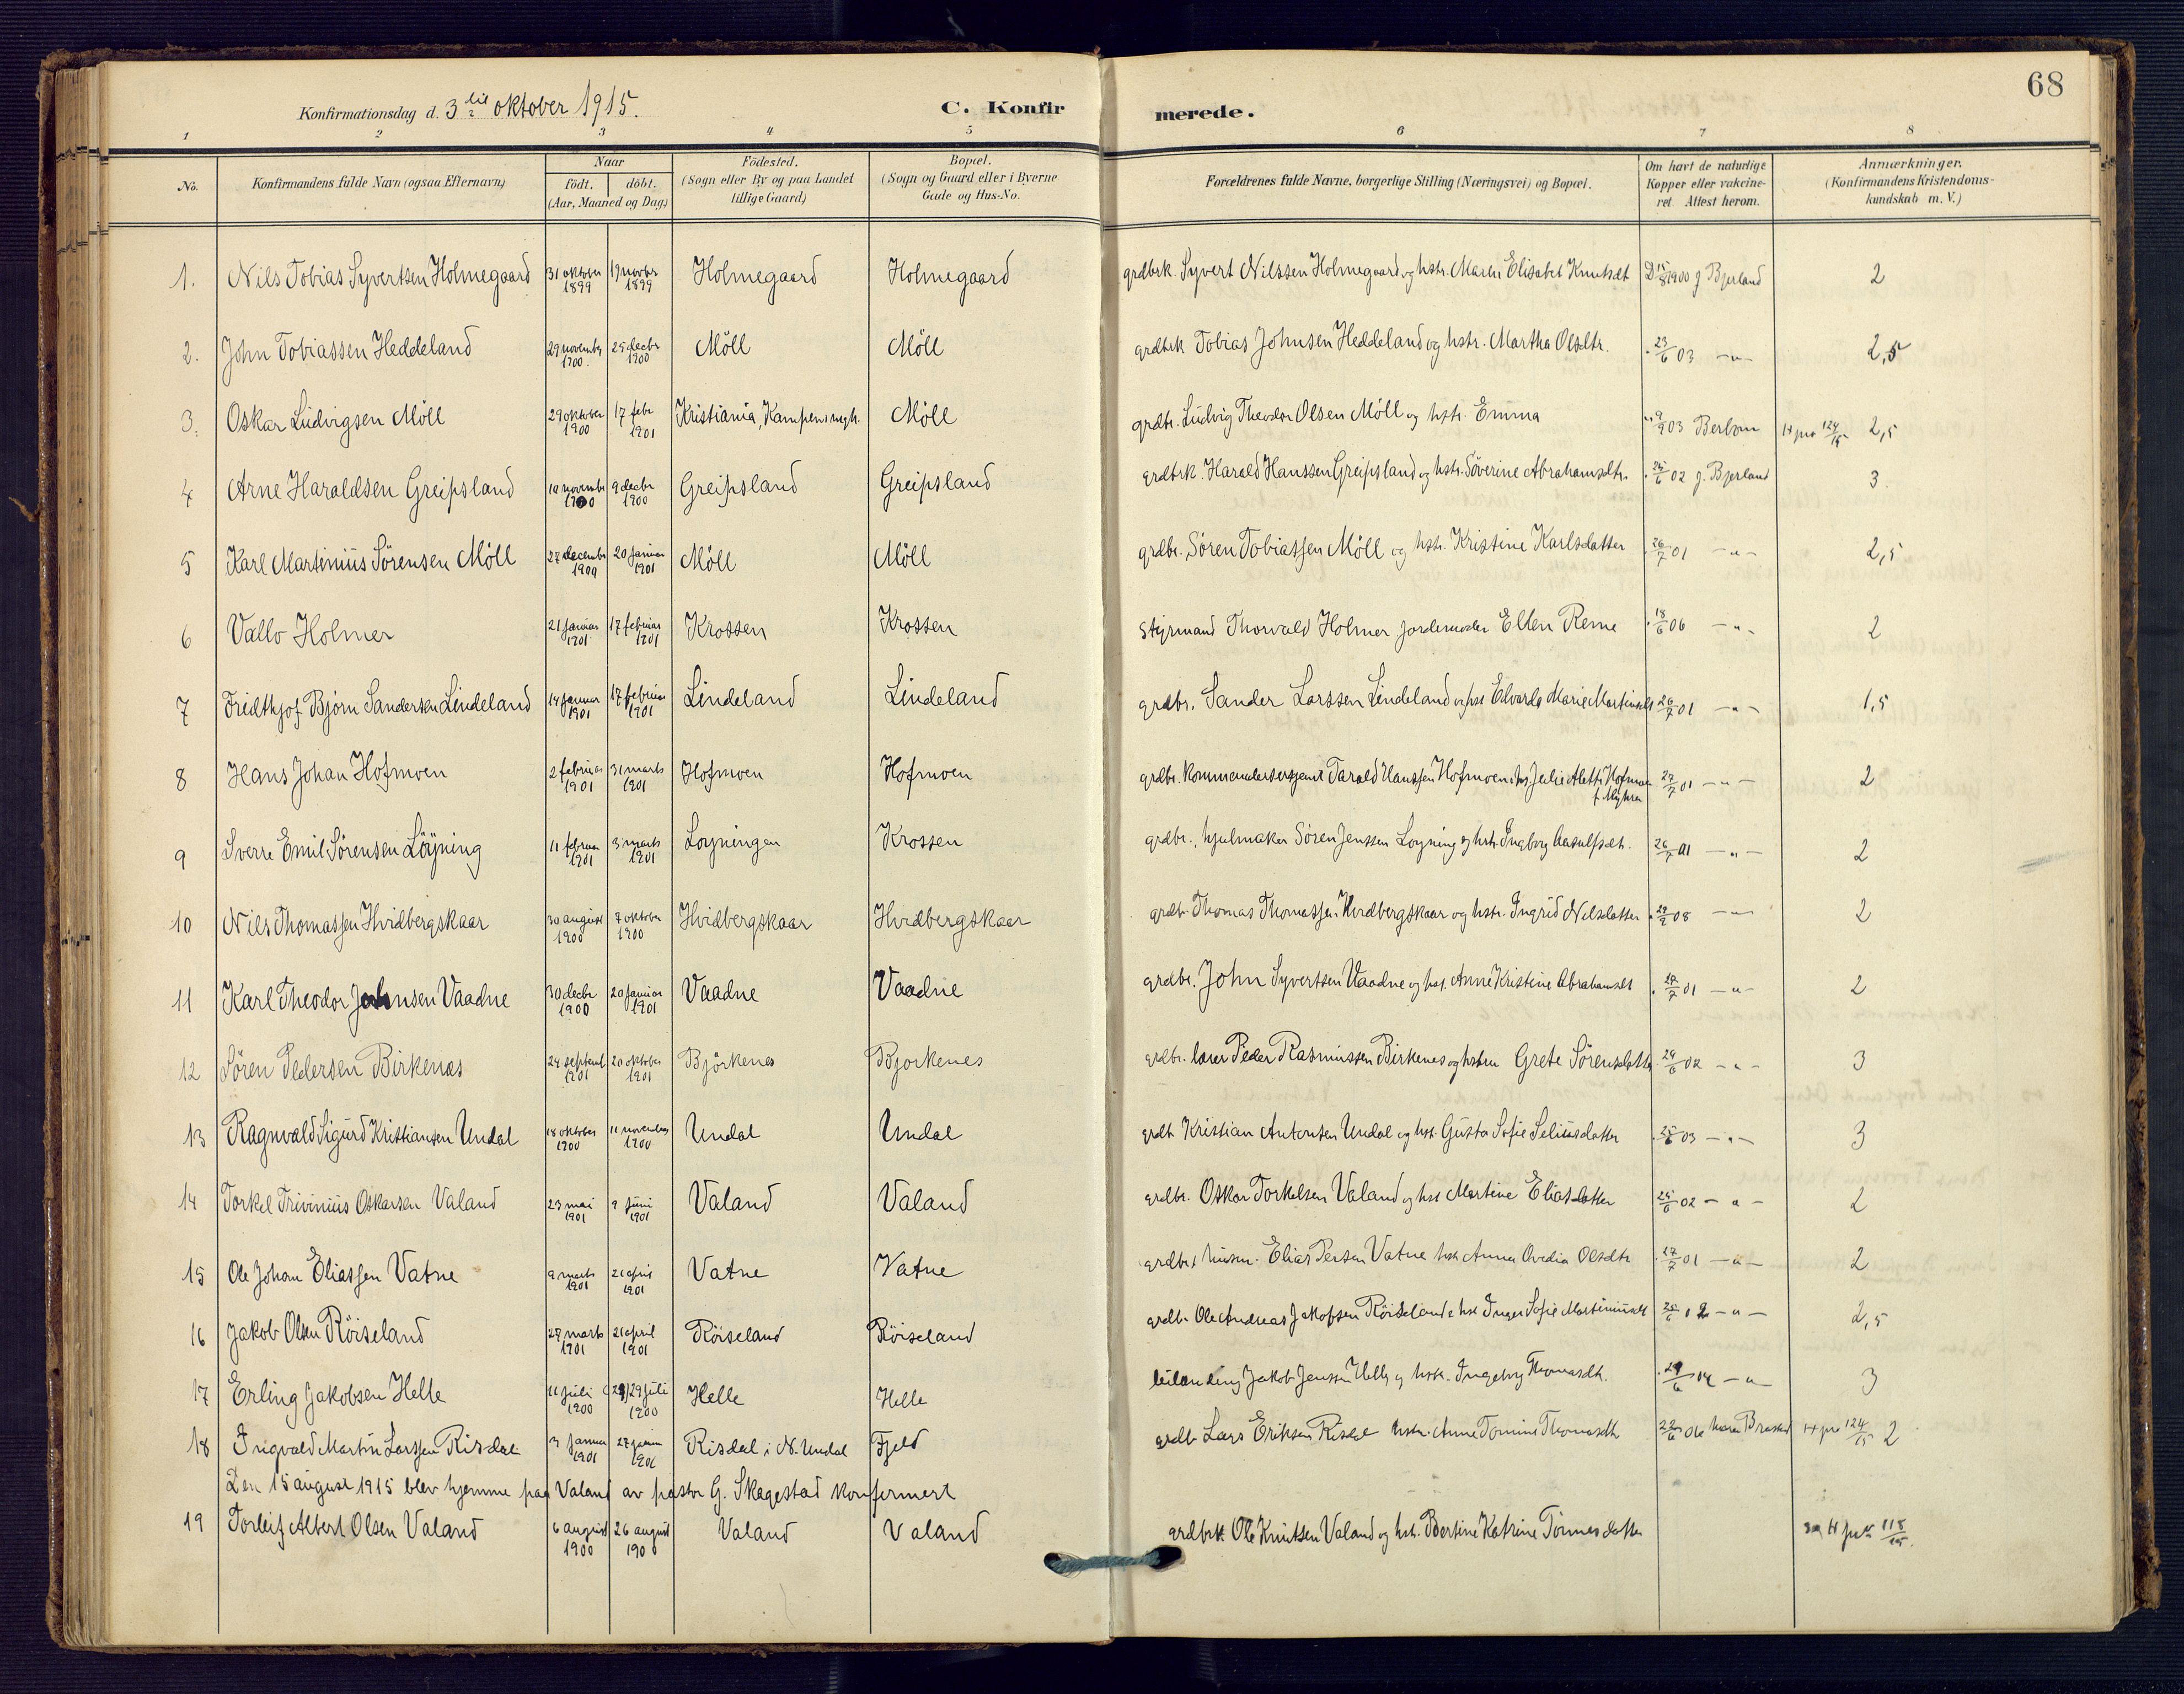 68
Konfirmationsdag d. 3die oktober 1915. C. Konfirmerede.
1 2 3 4 5 6 7 8
No. Konfirmandens fulde Navn (ogsaa Efternavn) Naar födt. döbt. (Aar, Maaned og Dag) Födested. (Sogn eller By og paa Landet tillige Gaard) Bopæl. (Sogn og Gaard eller i Byerne Gade og Hus-No. Forældrenes fulde Navne, borgerlige Stilling (Næringsvei) og Bopæl. Om havt de naturlige Kopper eller vakcineret. Attest herom. Anmærkninger. (Konfirmandens Kristendomskundskab m. V.)
1. Nils Tobias Syvertsen Holmegaard 31 oktober 1899 19 novbr 1899 Holmegaard Holmegaard grdbrk. Syvert Nilssen Holmegaard og hstr. Marthe Elisabet Knutsdt D 15/8 1900 g Bjerland 2
2. John Tobiassen Heddeland 29 novembr 1900 25 decbr 1900 Möll Möll grdbrk Tobias Johnsen Heddeland og hstr. Martha Olsdtr. 23/6 03 -"- 2,5
3. Oskar Ludvigsen Möll 29 oktober 1900 17 febr 1901 Kristiania, Kampens mgh. Möll grdbr. Ludvig Theodor Olsen Möll og hstr. Emma 9/9 03 Berbom H pro 124/15 2,5
4 Arne Haraldsen Greipsland 10 novembr 1900 9 decbr 1900 Greipsland Greipsland grdbrk. Harald Hanssen Greipsland og hstr. Söverine Abrahamsdtr. 25/6 02 g. Bjerland 3.
5 Karl Martinius Sörensen Möll 27 decembr 1900 20 januar 1901 Möll Möll grdbr. Sören Tobiassen Möll og hstr. Kristine Karlsdatter 26/7 01 -"- 2,5
6 Vallo Holmer 21 januar 1901 17 februar 1901 Krossen Krossen Styrmand Thorvald Holmer jordemoder Ellen Reme 18/6 06 -"- 2
7 Fridthjof Björn Sandersen Lindeland 14 januar 1901 17 februar 1901 Lindeland Lindeland grdbr. Sander Larssen Lindeland og hst Edvarda Marie Martinsdt 26/7 01 -"- 1,5
8 Hans Johan Hofmoen 2 februar 1901 31 marts 1901 Hofmoen Hofmoen grdbr. Kommandersersjent Tarald Hanssen Hofmoen hs Julie Alette Hofmoen f. Myhren 27/7 01 -"- 2
9 Sverre Emil Sörensen Löyning 11 februar 1901 3 marts 1901 Loyningen Krossen grdbr., hjulmaker Sören Jenssen Loyning og hstr. Ingborg Aasulfsdt. 26/7 01 -"- 2
10 Nils Thomassen Hvidbergskaar 30 august 1900 7 oktober 1900 Hvidbergskaar Hvidbergskaar grdbr Thomas Thomassen Hvidbergskaar og hstr. Ingrid Nilsdatter 29/2 08 -"- 2
11 Karl Theodor Johnsen Vaadne 30 decbr 1900 20 januar 1901 Vaadne Vaadne grdbr. John Syvertsen Vaadne og hst. Anne Kristine Abrahamsdt 27/7 01 -"- 2
12 Sören Pedersen Birkenes 24 septemb 1901 20 oktober 1901 Björkenes Bjorkenes grdbr. lærer Peder Rasmussen Birkenes og hstru Grete Sörensdatter 24/6 02 -"- 3
13 Ragnvald Sigurd Kristiansen Undal 18 oktober 1900 11 november 1900 Undal Undal grdb Kristian Antonsen Undal og hst. Gusta Sofie Seliusdatter 25/6 03 -"- 3
14 Torkel Trivinius Oskarsen Valand 23 mai 1901 9 juni 1901 Valand Valand grdbr. Oskar Torkelsen Valand og hst Martine Eliasdatter 25/6 02 -"- 2
15 Ole Johan Eliassen Vatne 9 marts 1901 21 april 1901 Vatne Vatne grdbr, husm. Elias Persen Vatne hstr Anna Ovedia Olsdtr 27/7 01 -"- 2
16 Jakob Olsen Röiseland 27 marts 1901 21 april 1901 Röiseland Röiseland grdbr Ole Andreas Jakobsen Röiseland hst Inger Sofie Martiniusdt 25/6 12 -"- 2,5
17 Erling Jakobsen Helle 11 juli 1900 29 juli 1900 Helle Helle leilending Jakob Jenssen Helle og hstr. Ingeborg Thomasdt. 29/6 14 -"- 3
18 Ingvald Martin Larssen Risdal 3 januar 1901 27 januar 1901 Risdal i N. Undal Fjeld grdbr Lars Eriksen Risdal hstr. Anne Tomine Thomasdt 22/6 06 H pro 124/15 2
Den 15 august 1915 blev hjemme paa Valand av pastor G. Skagestad konfirmert
19 Torleif Albert Olsen Valand 6 august 1900 26 august 1900 Valand Valand grdbrk Ole Knutsen Valand og hstr. Bertine Katrine Tönnesdatter H pro 118/15.